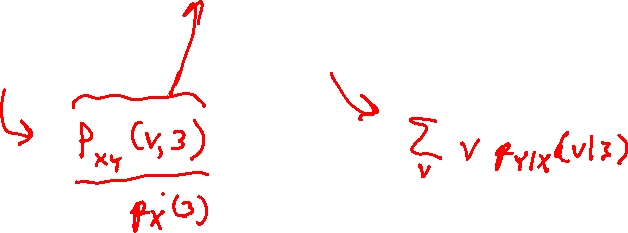 P_{XY}(v,3)
p_X(3)
∑_v v p_{Y|X}(v|3)